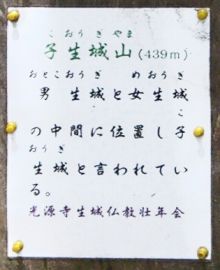 こおうぎやま
子生城山(439m)
おとこおうぎ めおうぎ
男 生城と女生城
こ
の中間に位置し子
おうぎ
生城と言われてい
る。
光源寺生城仏教壮年会